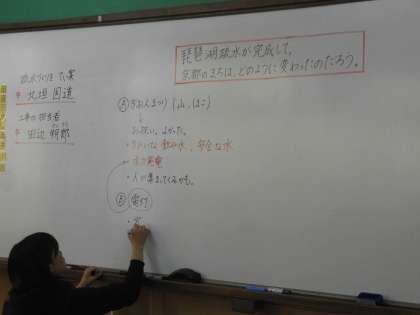 琵琶湖疏水が完成して、
京都のまちは、どのように変わったのだろう。
北垣 国道
工事の担当者
田辺 朔郎
Ⓐ ぎおんまつり (山、ほこ)
↓
お祝い。よかった。
・きれいな飲み水、安全な水
・水力発電
・人が集まってくるかも。
Ⓑ 電灯